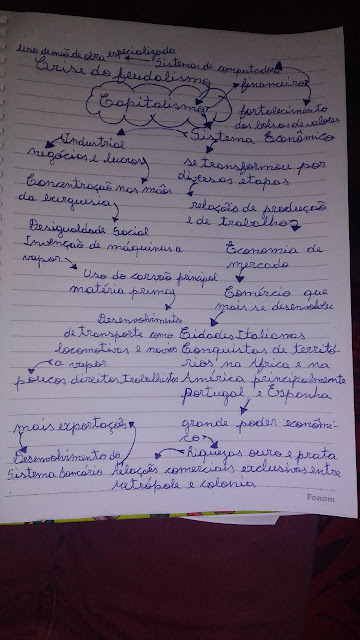 uso de mão de obra especializada
Sistemas de computadores
Crise do feudalismo
financeiro
Capitalismo
fortalecimento
das bolsas de valores
Sistema Econômico
Industrial
negócios e lucros
se transformou por
diversas etapas
Concentração nas mãos
da burguesia
relações de produção
e de trabalho
Desigualdade Social
Invenção de máquinas a
vapor
Economia de
mercado
Uso do carvão principal
matéria prima
Comércio que
mais se desenvolveu
Desenvolvimento
de transporte como
locomotivas e navios
a vapor
Cidades Italianas
Conquistas de territó-
rios na África e na
América principalmente
Portugal e Espanha
poucos direitos trabalhistas
mais exportações
grande poder econômi-
co
Desenvolvimento do
Sistema bancário
Riquezas ouro e prata
Relações comerciais exclusivas entre
Metrópole e colonia
FORONI